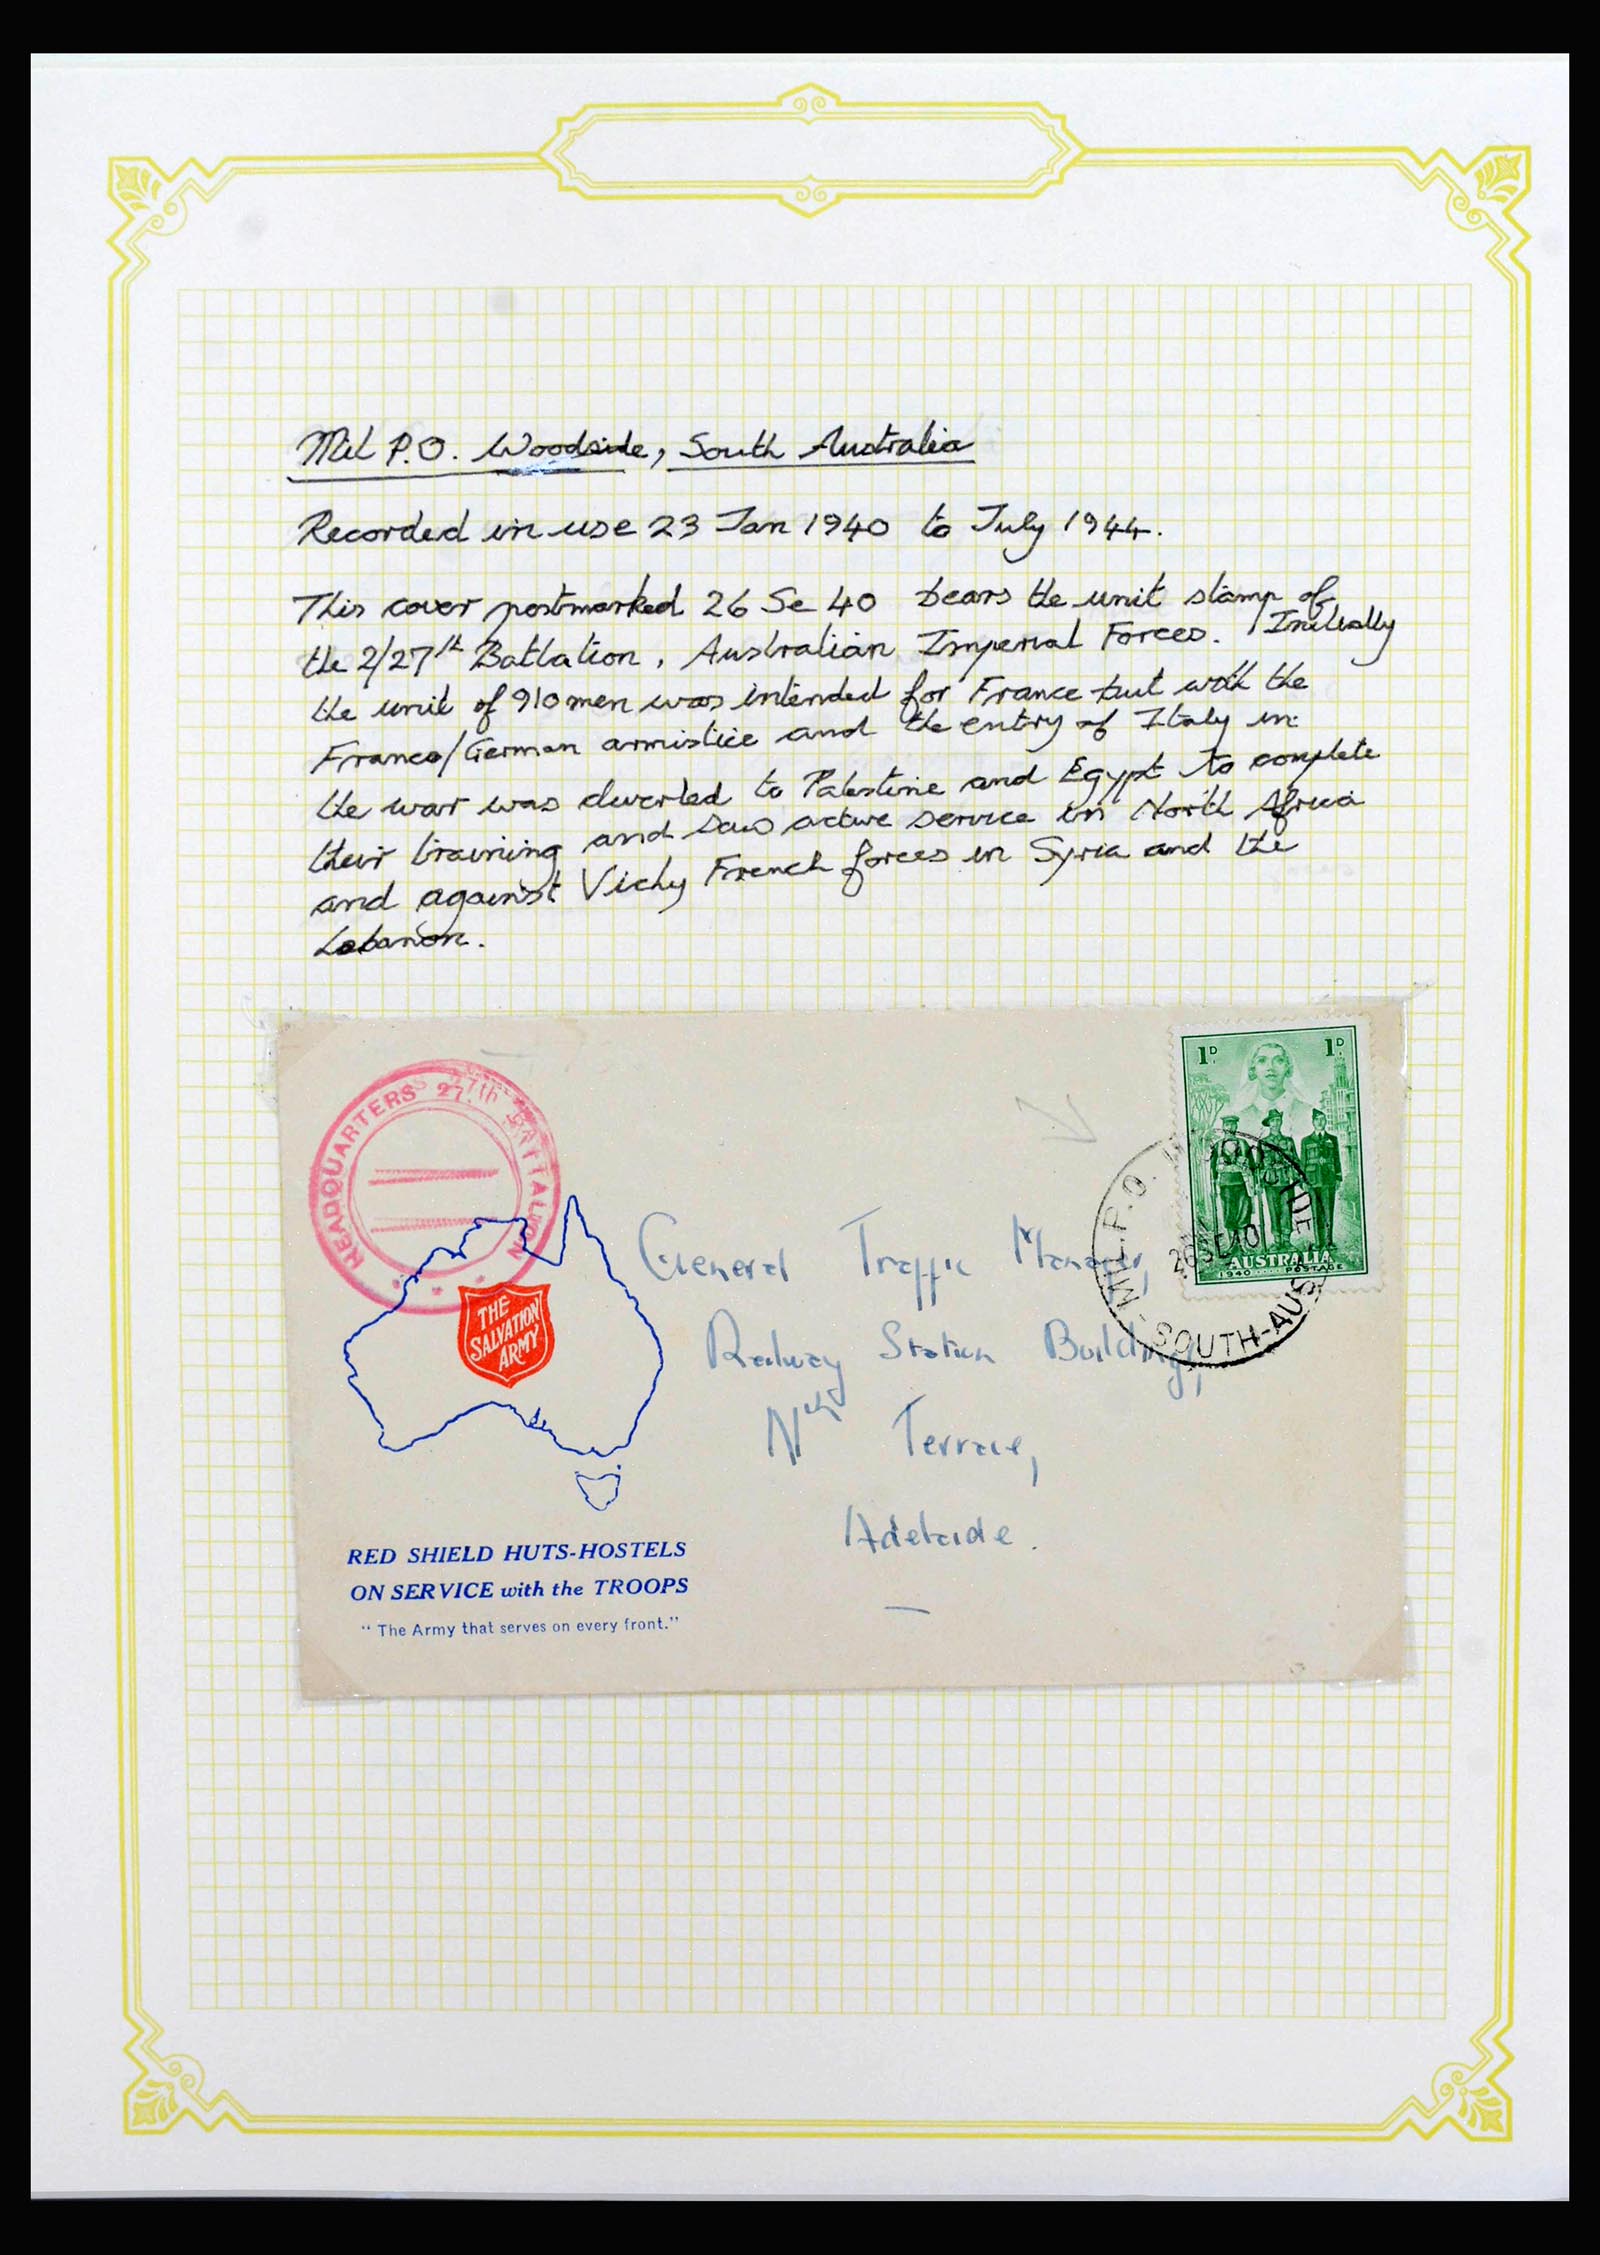 Mil P.O. Woodside, South Australia
Recorded in use 23 Jan 1940 to July 1944.
This cover postmarked 26 Se 40 bears the unit stamp of
the 2/27th Battalion, Australian Imperial Forces. Initially
the unit of 910 men was intended for France but with the
Franco/German armistice and the entry of Italy in
the war was diverted to Palestine and Egypt to complete
their training and saw active service in North Africa
and against Vichy French forces in Syria and the
Lebanon.
HEADQUARTERS 27th BATTALION
1D 1D
AUSTRALIA
1940 POSTAGE
MIL. P.O. WOODSIDE
26 SE 40
SOUTH-AUST
THE
SALVATION
ARMY
General Traffic Manager,
Railway Station Building,
Nth Terrace,
Adelaide.
RED SHIELD HUTS-HOSTELS
ON SERVICE with the TROOPS
"The Army that serves on every front."